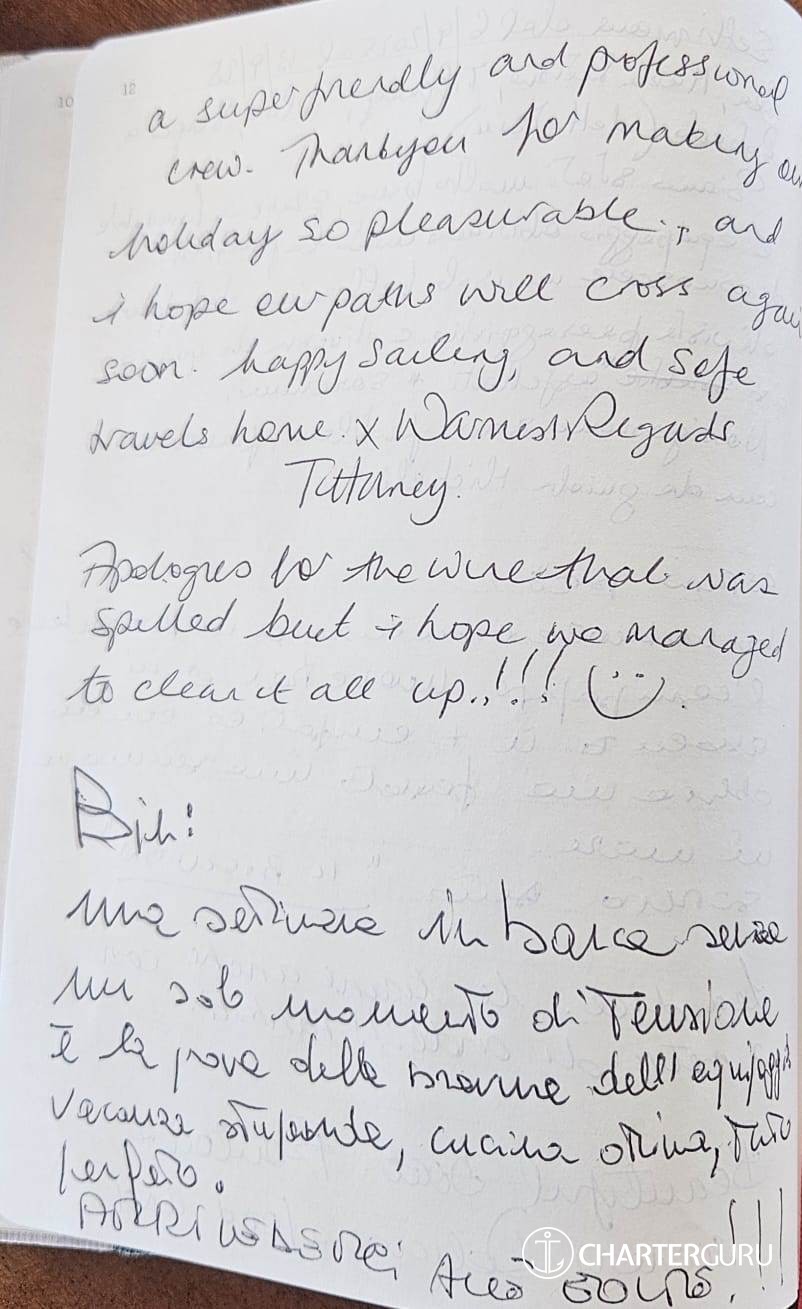 10
12
a superfriendly and professional
crew. Thankyou for making our
holiday so pleasurable., and
i hope our paths will cross again
soon. happy sailing, and safe
travels home. x Warmest Regards
Apologies for the wine that was
spilled but i hope we managed
to clean it all up.,!!! ☺.
una settimana in barca senza
un solo momento di tensione
è la prova della bravura dell'equipaggio
vacanza stupenda, cucina ottima, tutto
perfetto.
ARRIVEDERCI !!!
CHARTERGURU